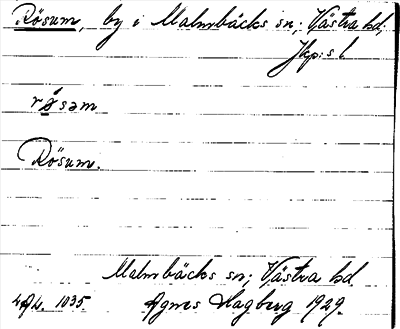 Rösum, by i Malmbäcks sn; Västra hd,
Jkp:s l.
Rösum.
Malmbäcks sn; Västra hd
Agnes Hagberg 1929.
1035